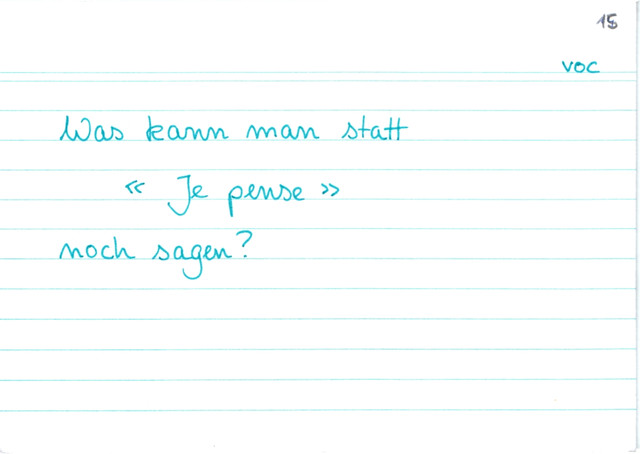 15
voc
Was kann man statt
« Je pense »
noch sagen?